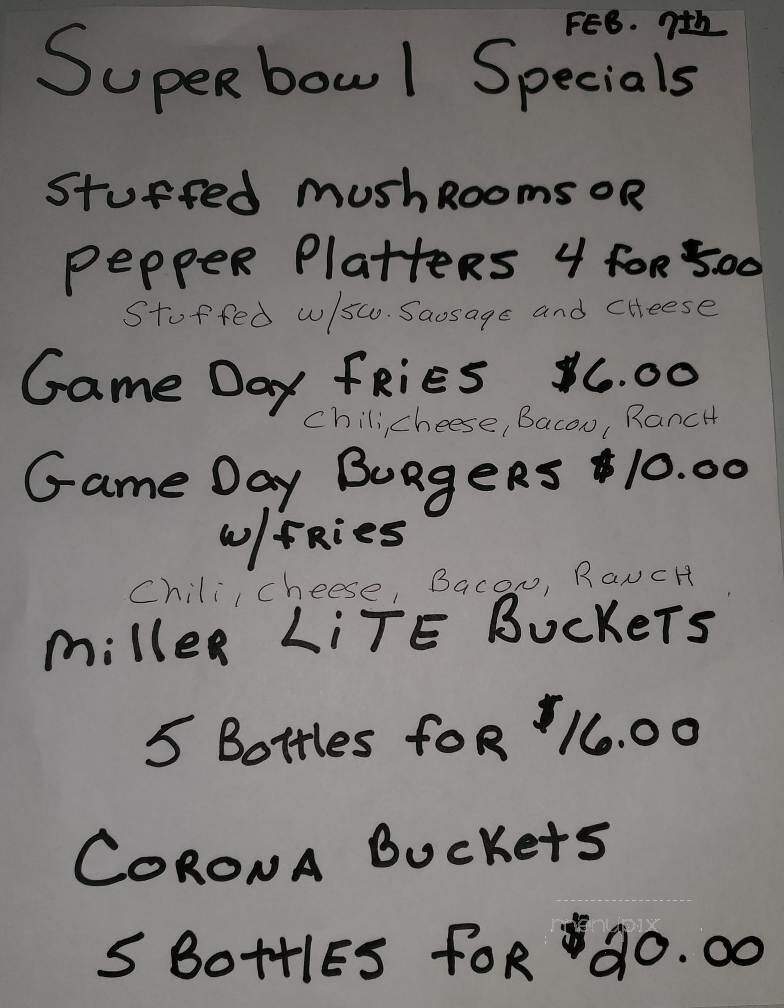 FEB. 7th
Superbowl Specials
Stuffed mushrooms OR
Pepper Platters 4 for $5.00
Stuffed w/sw. Sausage and Cheese
Game Day fries $6.00
Chili, cheese, Bacon, Ranch
Game Day Burgers $10.00
w/fries
Chili, cheese, Bacon, Ranch
Miller LiTE Buckets
5 Bottles for $16.00
Corona Buckets
menupix
5 Bottles for $20.00